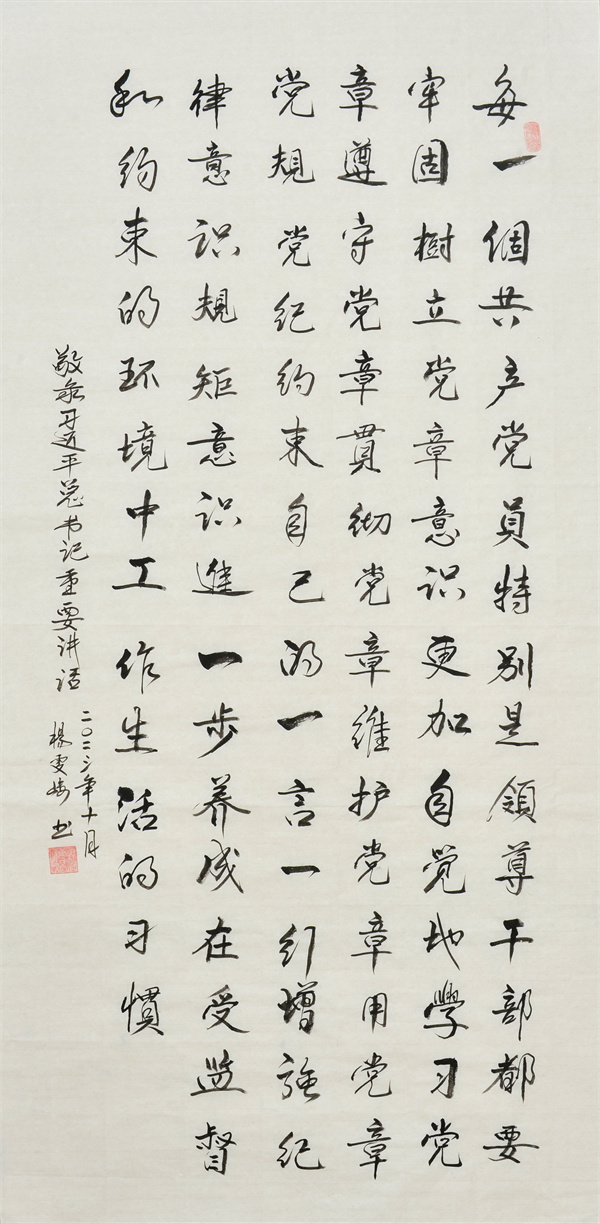 每一個共产党員特别是領導干部都要
牢固樹立党章意识更加自觉地學习党
章遵守党章貫彻党章維护党章用党章
党規党紀约束自己的一言一行增強紀
律意识規矩意识進一步养成在受监督
和约束的环境中工作生活的习慣
敬录习近平总书记重要讲话
二〇二三年十月
楊雯 书